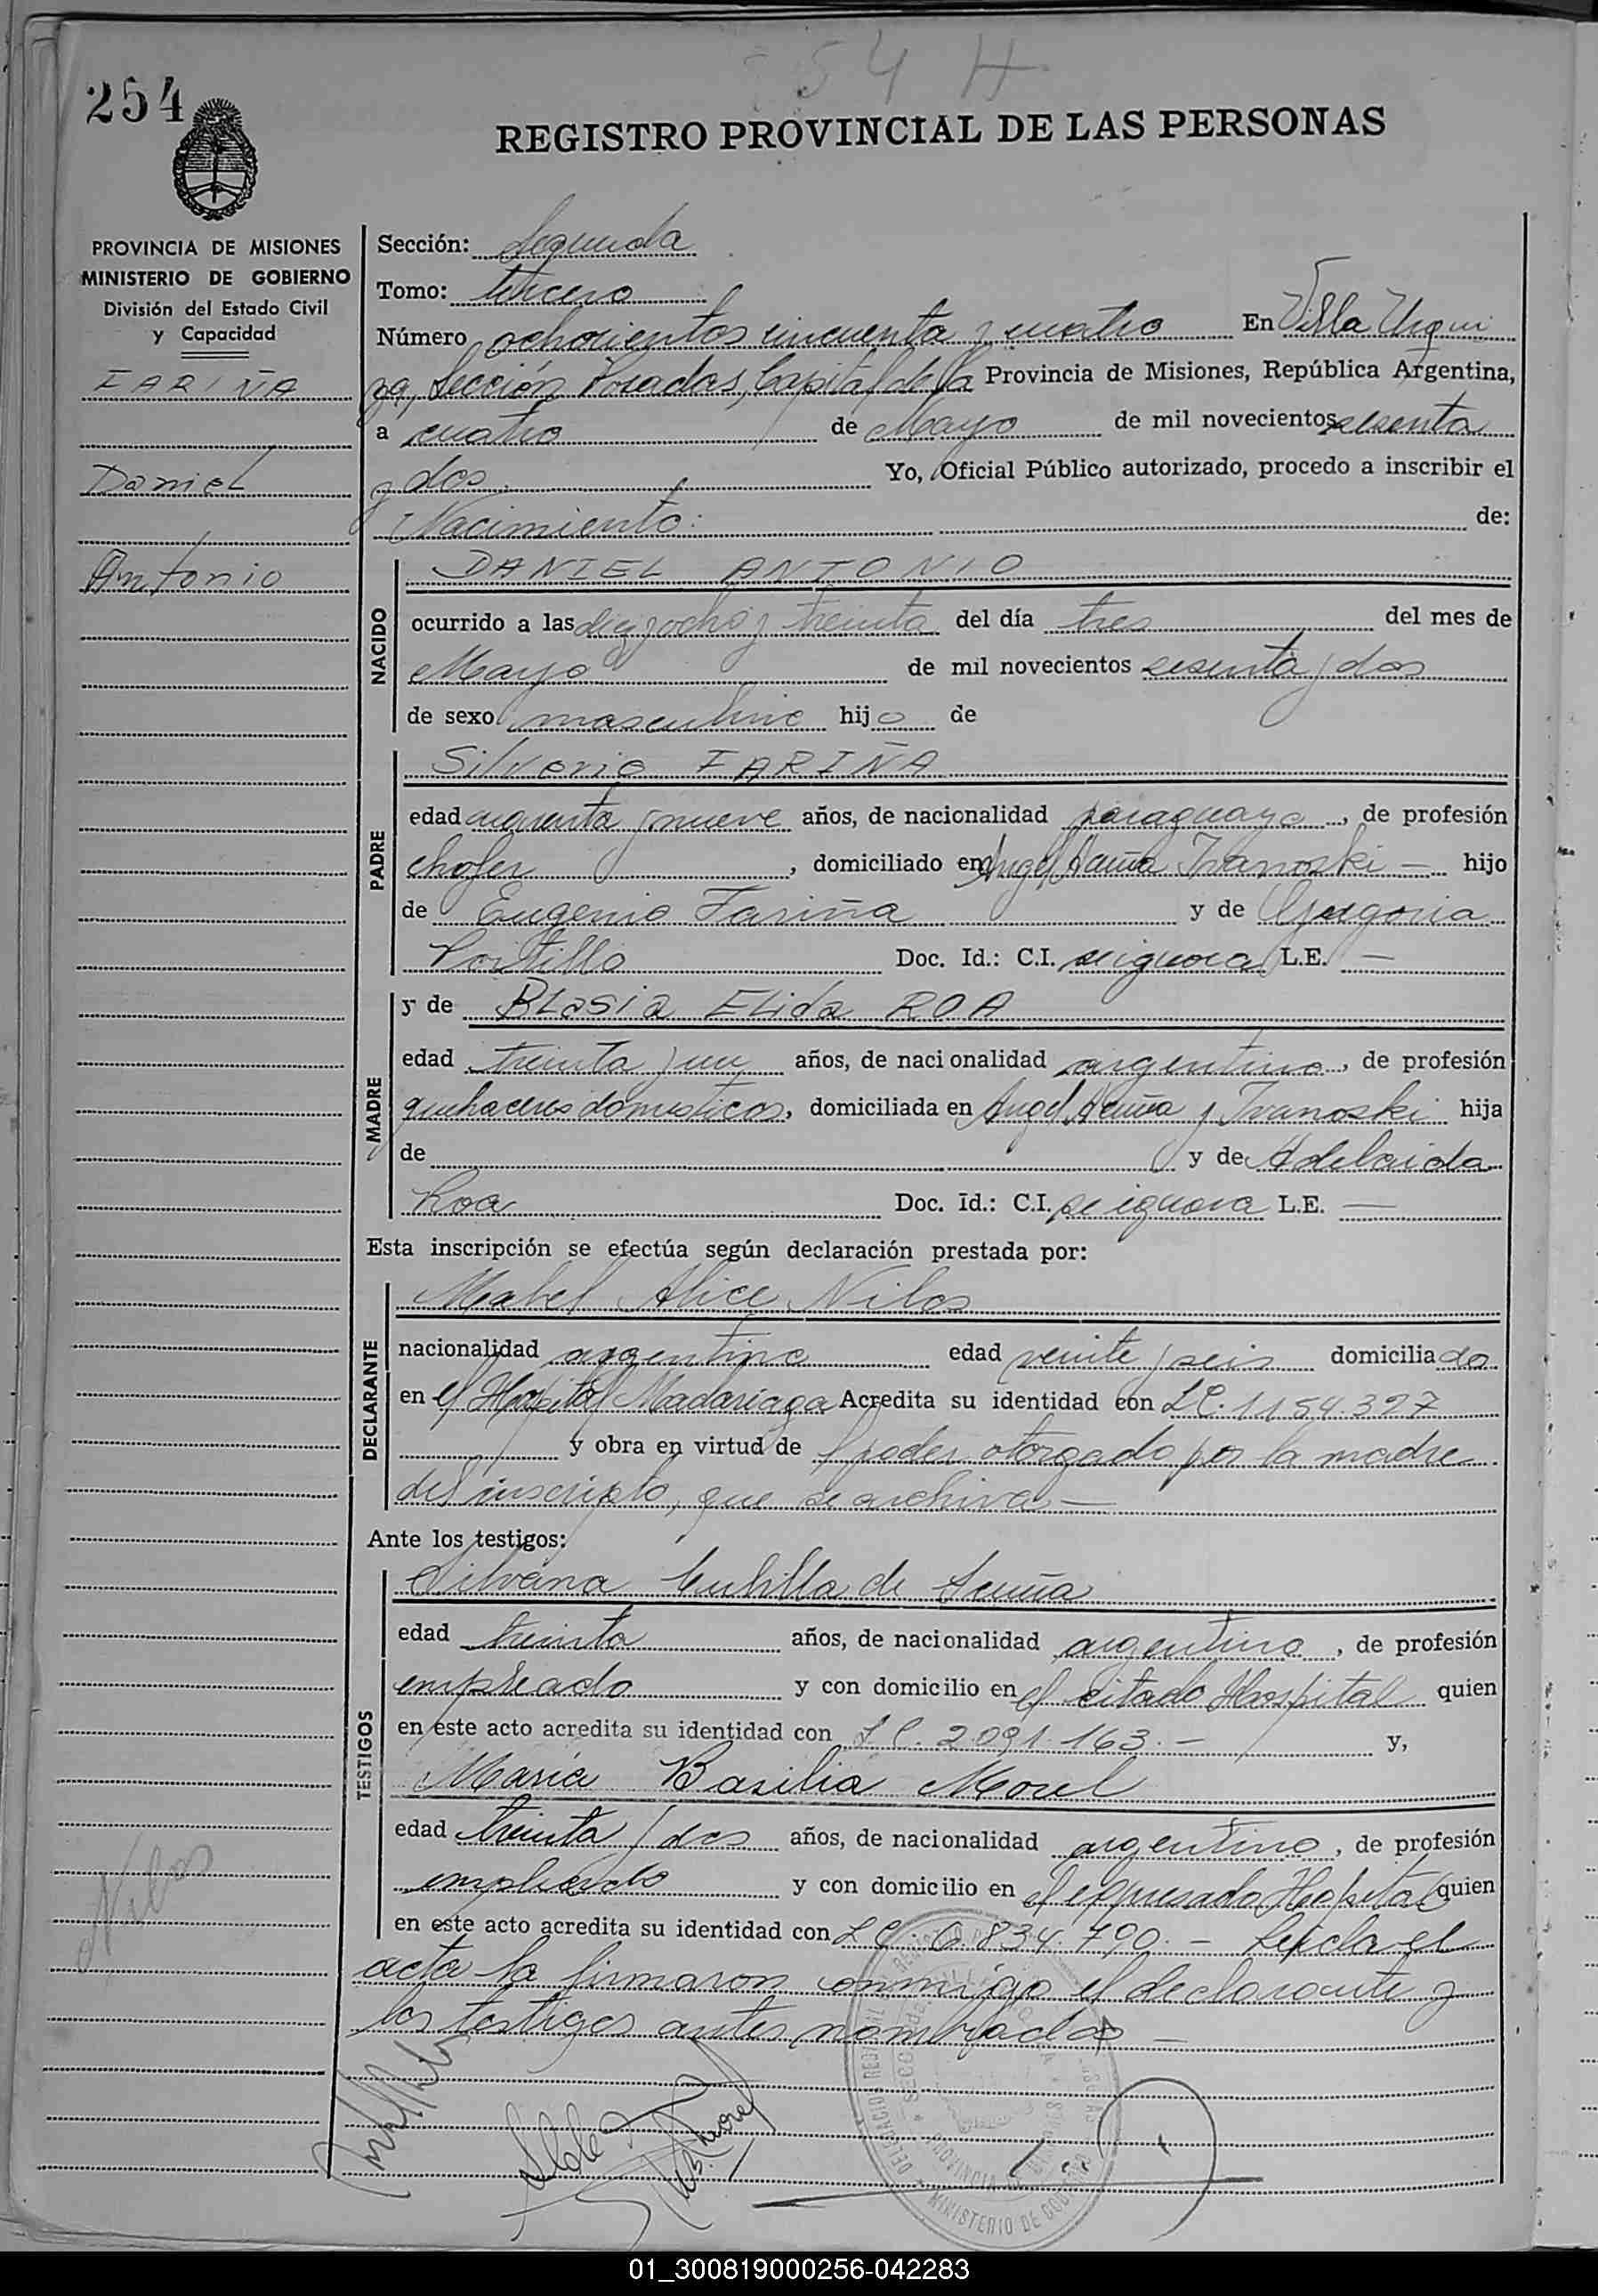 254
54 H
REGISTRO PROVINCIAL DE LAS PERSONAS
PROVINCIA DE MISIONES
MINISTERIO DE GOBIERNO
División del Estado Civil
y Capacidad
FARIÑA
Daniel
Antonio
Nilos
Sección: Segunda
Tomo: tercero
Número ochocientos cincuenta y cuatro En Villa Urqui
za, Sección Posadas, Capital de la Provincia de Misiones, República Argentina,
a cuatro de Mayo de mil novecientos sesenta
y dos. Yo, Oficial Público autorizado, procedo a inscribir el
Nacimiento: de:
NACIDO
DANIEL ANTONIO
ocurrido a las diez y ocho y treinta del día tres del mes de
Mayo de mil novecientos sesenta y dos
de sexo masculino hijo de
PADRE
Silverio FARIÑA
edad cuarenta y nueve años, de nacionalidad paraguaya, de profesión
chofer, domiciliado en Angel Acuña Ivanoski — hijo
de Eugenio Fariña y de Gregoria
Portillo Doc. Id.: C.I. se ignora L.E. —
MADRE
y de Blasia Elida ROA
edad treinta y un años, de nacionalidad argentina, de profesión
quehaceres domesticos, domiciliada en Angel Acuña y Ivanoski hija
de y de Adelaida
Roa Doc. Id.: C.I. se ignora L.E. —
Esta inscripción se efectúa según declaración prestada por:
DECLARANTE
Mabel Alice Nilos
nacionalidad argentina edad veinte y seis domiciliada
en el Hospital Madariaga Acredita su identidad con L.C. 1154.397
y obra en virtud de poder otorgado por la madre
del inscripto, que se archiva —
Ante los testigos:
TESTIGOS
Silvana Cubilla de Acuña
edad treinta años, de nacionalidad argentina, de profesión
empleada y con domicilio en el citado Hospital quien
en este acto acredita su identidad con L.C. 2.091.163. — y,
María Basilia Morel
edad treinta y dos años, de nacionalidad argentina, de profesión
empleada y con domicilio en el expresado Hospital quien
en este acto acredita su identidad con L.C. 6.834.790. — Leída el
acta la firmaron conmigo el declarante y
los testigos antes nombrados —
MINISTERIO DE GOB
01_300819000256-042283